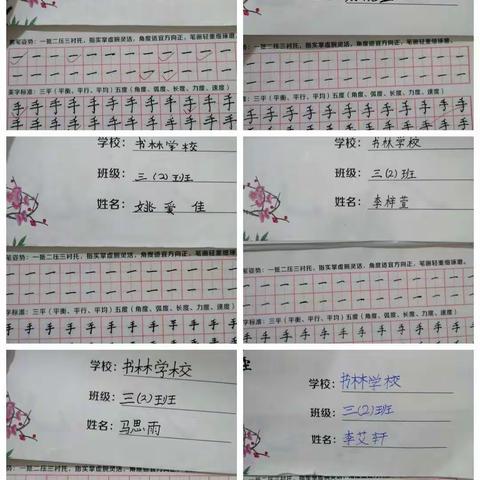 握笔姿势：一抵二压三衬托，指实掌虚腕灵活，角度适宜方向正，笔画轻重细琢磨。
美字标准：三平（平衡、平行、平均）五度（角度、弧度、长度、力度、速度）
手手手手手手手手手手手
手手手手手手手手手手手
势：一抵二压三衬托，指实掌虚腕灵活，角度适宜方向正，笔画轻重细琢磨。
字标准：三平（平衡、平行、平均）五度（角度、弧度、长度、力度、速度）
手手手手手手手手手手手
手手手手手手手手手手手
学校：书林学校
班级：三（2）班
姓名：姚爱佳
笔姿势：一抵二压三衬托，指实掌虚腕灵活，角度适宜方向正，笔画轻重细琢磨。
标准：三平（平衡、平行、平均）五度（角度、弧度、长度、力度、速度）
手手手手手手手手手手手
学校：书林学校
班级：三（2）班
姓名：李梓萱
笔姿势：一抵二压三衬托，指实掌虚腕灵活，角度适宜方向正，笔画轻重细琢磨。
字标准：三平（平衡、平行、平均）五度（角度、弧度、长度、力度、速度）
手手手手手手手手手手手
学校：书林学校
班级：三（2）班
姓名：马思雨
学校：书林学校
班级：三（2）班
姓名：李艾轩